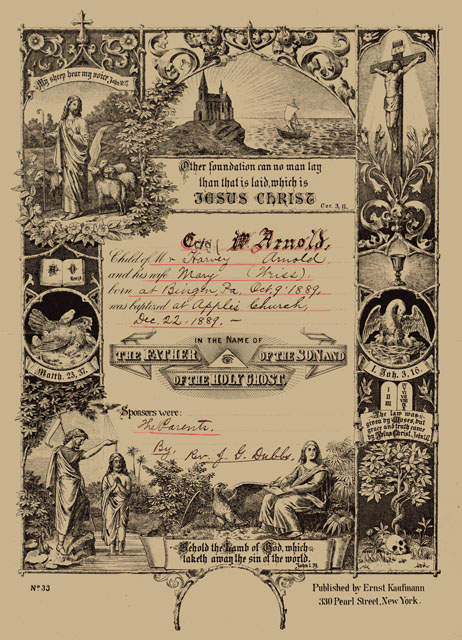 My sheep hear my voice, John 10,27.
Other foundation can no man lay
than that is laid, which is
JESUS CHRIST
Cor. 3, 11.
W. Arnold,
Child of Mr Harvey Arnold
and his wife Mary (Weiss).
born at Bingen, Pa, Oct, 9' 1889.
was baptized at Apple's Church,
Dec. 22, 1889. —
IN THE NAME OF
THE FATHER OF THE SON AND
OF THE HOLY GHOST.
Matth. 23, 37.
1. Joh. 3, 16.
The law was
given by Moses, but
grace and truth came
by Jesus Christ. John 1,17.
Sponsors were:
The Parents.
By. Rev. J. G. Dubbs.
Behold the Lamb of God, which
taketh away the sin of the world.
John 1. 29.
No 33
Published by Ernst Kaufmann
330 Pearl Street, New York.